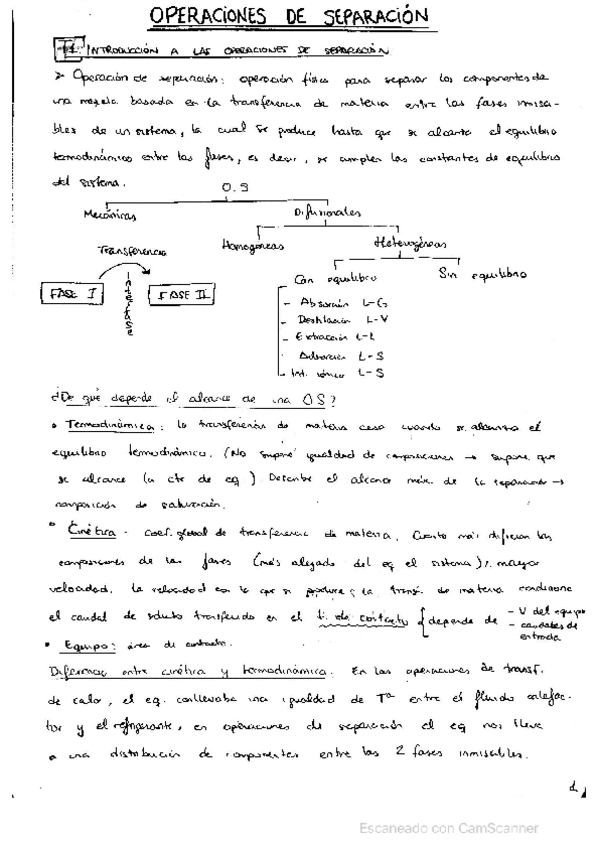 OPERACIONES DE SEPARACIÓN
T1: INTRODUCCIÓN A LAS OPERACIONES DE SEPARACIÓN
> Operación de separación: operación física para separar los componentes de
una mezcla basada en la transferencia de materia entre las fases inmisci-
bles de un sistema, la cual se produce hasta que se alcanza el equilibrio
termodinámico entre las fases, es decir, se cumplen las constantes de equilibrio
del sistema.
O.S
Mecánicas
Difusionales
Homogéneas
Heterogéneas
Con equilibrio
Sin equilibrio
Transferencia
FASE I
Interfase
FASE II
- Absorción L-G
- Destilación L-V
- Extracción L-L
- Adsorción L-S
- Int. iónico L-S
¿De qué depende el alcance de una OS?
• Termodinámica: la transferencia de materia cesa cuando se alcanza el
equilibrio termodinámico. (No supone igualdad de composiciones → supone que
se alcance la cte de eq.) Describe el alcance máx. de la separación →
composición de saturación.
• Cinética - coef. global de transferencia de materia. Cuanto más difieran las
composiciones de las fases (más alejado del eq el sistema), mayor
velocidad. La velocidad con la que se produce la transf. de materia condiciona
el caudal de soluto transferido en el t. de contacto { depende de
- V del equipo
- caudales de
entrada
• Equipo: área de contacto.
Diferencia entre cinética y termodinámica: En las operaciones de transf.
de calor, el eq. conllevaba una igualdad de Tª entre el fluido calefac-
tor y el refrigerante, en operaciones de separación el eq nos lleva
a una distribución de componentes entre las 2 fases inmiscibles.
1
Escaneado con CamScanner